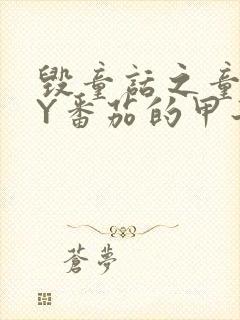 毁童话之童
Y番茄的甲
蒼夢